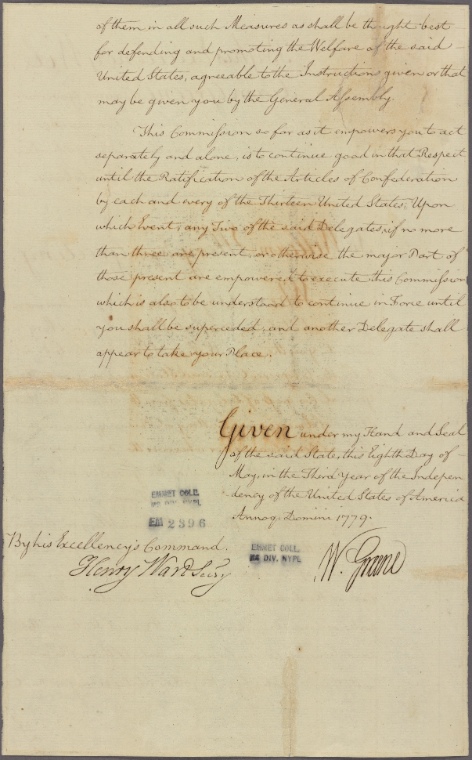 of them in all such Measures as shall be thought best
for defending and promoting the Welfare of the said
United States, agreeable to the Instructions given or that
may be given you by the General Assembly.
This Commission so far as it empowers you to act
separately and alone, is to continue good in that Respect
until the Ratification of the Articles of Confederation
by each and every of the Thirteen United States, Upon
which Event, any Two of the said Delegates, if no more
than three are present, or otherwise the major Part of
those present are empowered to execute this Commission
which is also to be understood to continue in Force until
you shall be superceded, and another Delegate shall
appear to take your Place.
Given under my Hand and Seal
of the said State, this Eighth Day of
May, in the Third Year of the Indepen
dency of the United States of America
Annoq: Domini 1779.
EMMET COLL.
EM 2396
By his Excellency's Command.
Henry Ward Secry
EMMET COLL.
MS DIV. NYPL
W. Greene